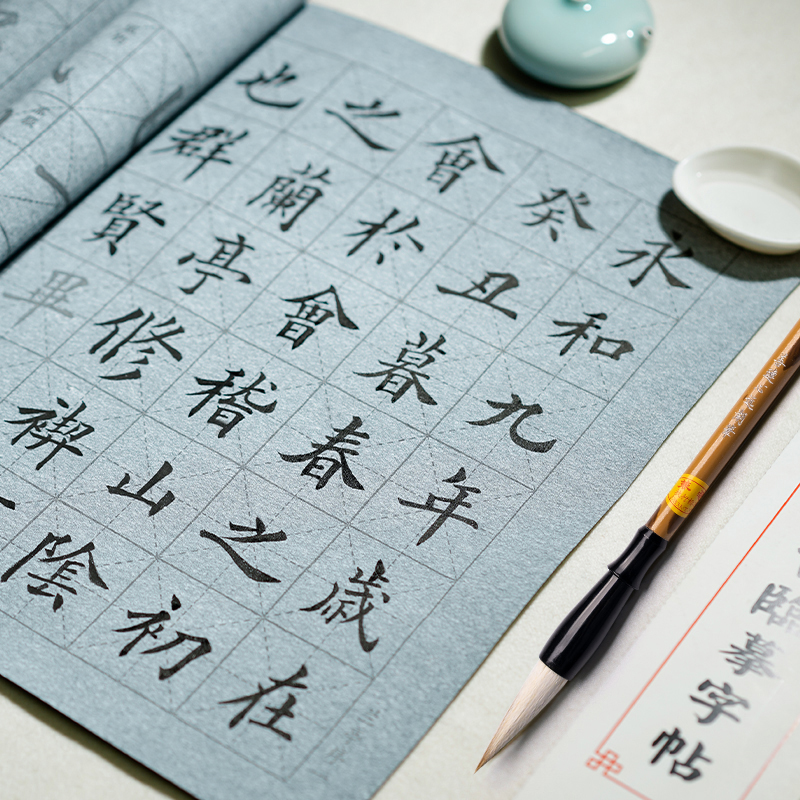 永和九年歲在
癸丑暮春之初
會於會稽山陰
之蘭亭修禊
也群賢畢
臨摹字帖